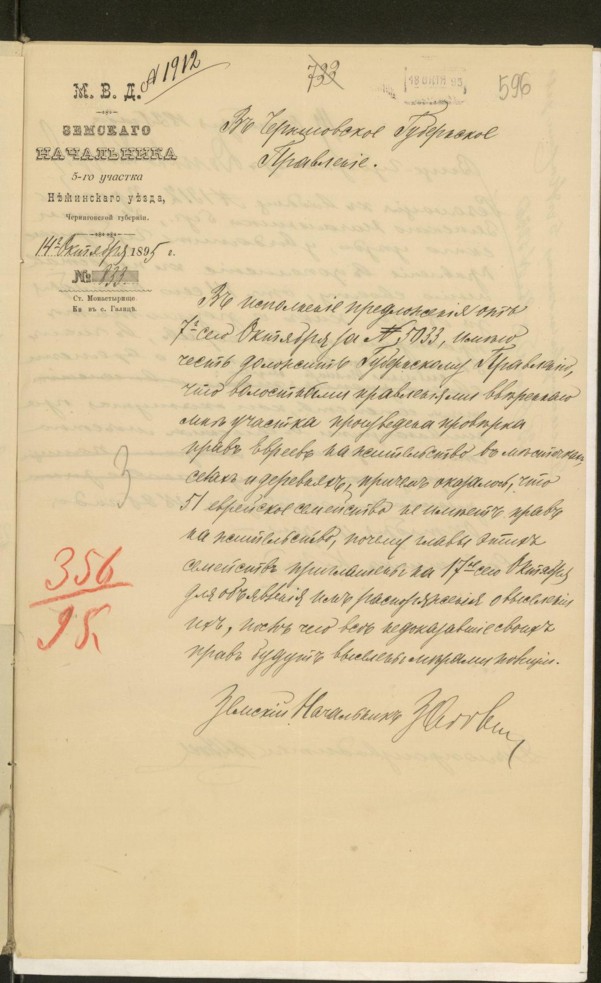 N 1912
733
18 ОКТЯ 95
596
М. В. Д.
ЗЕМСКАГО
НАЧАЛЬНИКА
5-го участка
Нѣжинскаго уѣзда,
Черниговской губерніи.
14го Октября 1895 г.
№ 939
Ст. Монастырище.
Кв въ с. Галицѣ.
Въ Черниговское Губернское
Правленіе.
Въ исполненіе предложенія отъ
7го сего Октября за № 5033, имѣю
честь доложить Губернскому Правленію,
что волостными правленіями ввѣреннаго
мнѣ участка произведена провѣрка
правъ Евреевъ на жительство въ мѣстечкахъ,
селахъ и деревняхъ, причемъ оказалось, что
51 еврейское семейство не имѣетъ правъ
на жительство, почему главы этихъ
семействъ приглашены на 17е сего Октября
для объявленія имъ распоряженія о выселеніи
ихъ, послѣ чего всѣ недоказавшіе своихъ
правъ будутъ выселены мѣрами полиціи.
3
356
95
Земскій Начальникъ